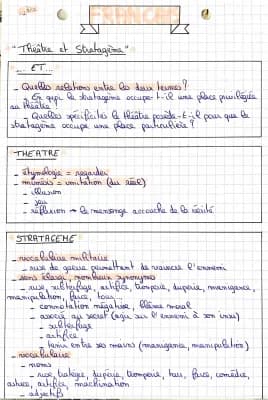 FRANÇAIS
"Théâtre et Stratagème"
ET...
- Quelles relations entre les deux termes?
En quoi le stratagème occupe-t-il une place privilégiée
au théâtre?
Quelles spécificités le théâtre possède-t-il pour que le
stratagème occupe une place particulière?
THEATRE
- étymologie = regarder
- mimesis = imitation (du réel)
- illusion
- jeu
- réflexion → le mensonge accouche de la vérité.
STRATAGEME
- vocabulaire militaire
- ruse de guerre permettant de vaincre l'ennemi
- sens élargi, nombreux synonymes
- ruse, subterfuge, artifice, tromperie, duperie, manigance,
manipulation, farce, tour...
- connotation négative, blâme moral
- associé au secret (agir sur l'ennemi à son insu)
- subterfuge
- artifice
- tenir entre ses mains (manigance, manipulation)
- vocabulaire
- noms
- ruse, duperie, tromperie, tour, farce, comédie,
astuce, artifice, machination
- adjectifs